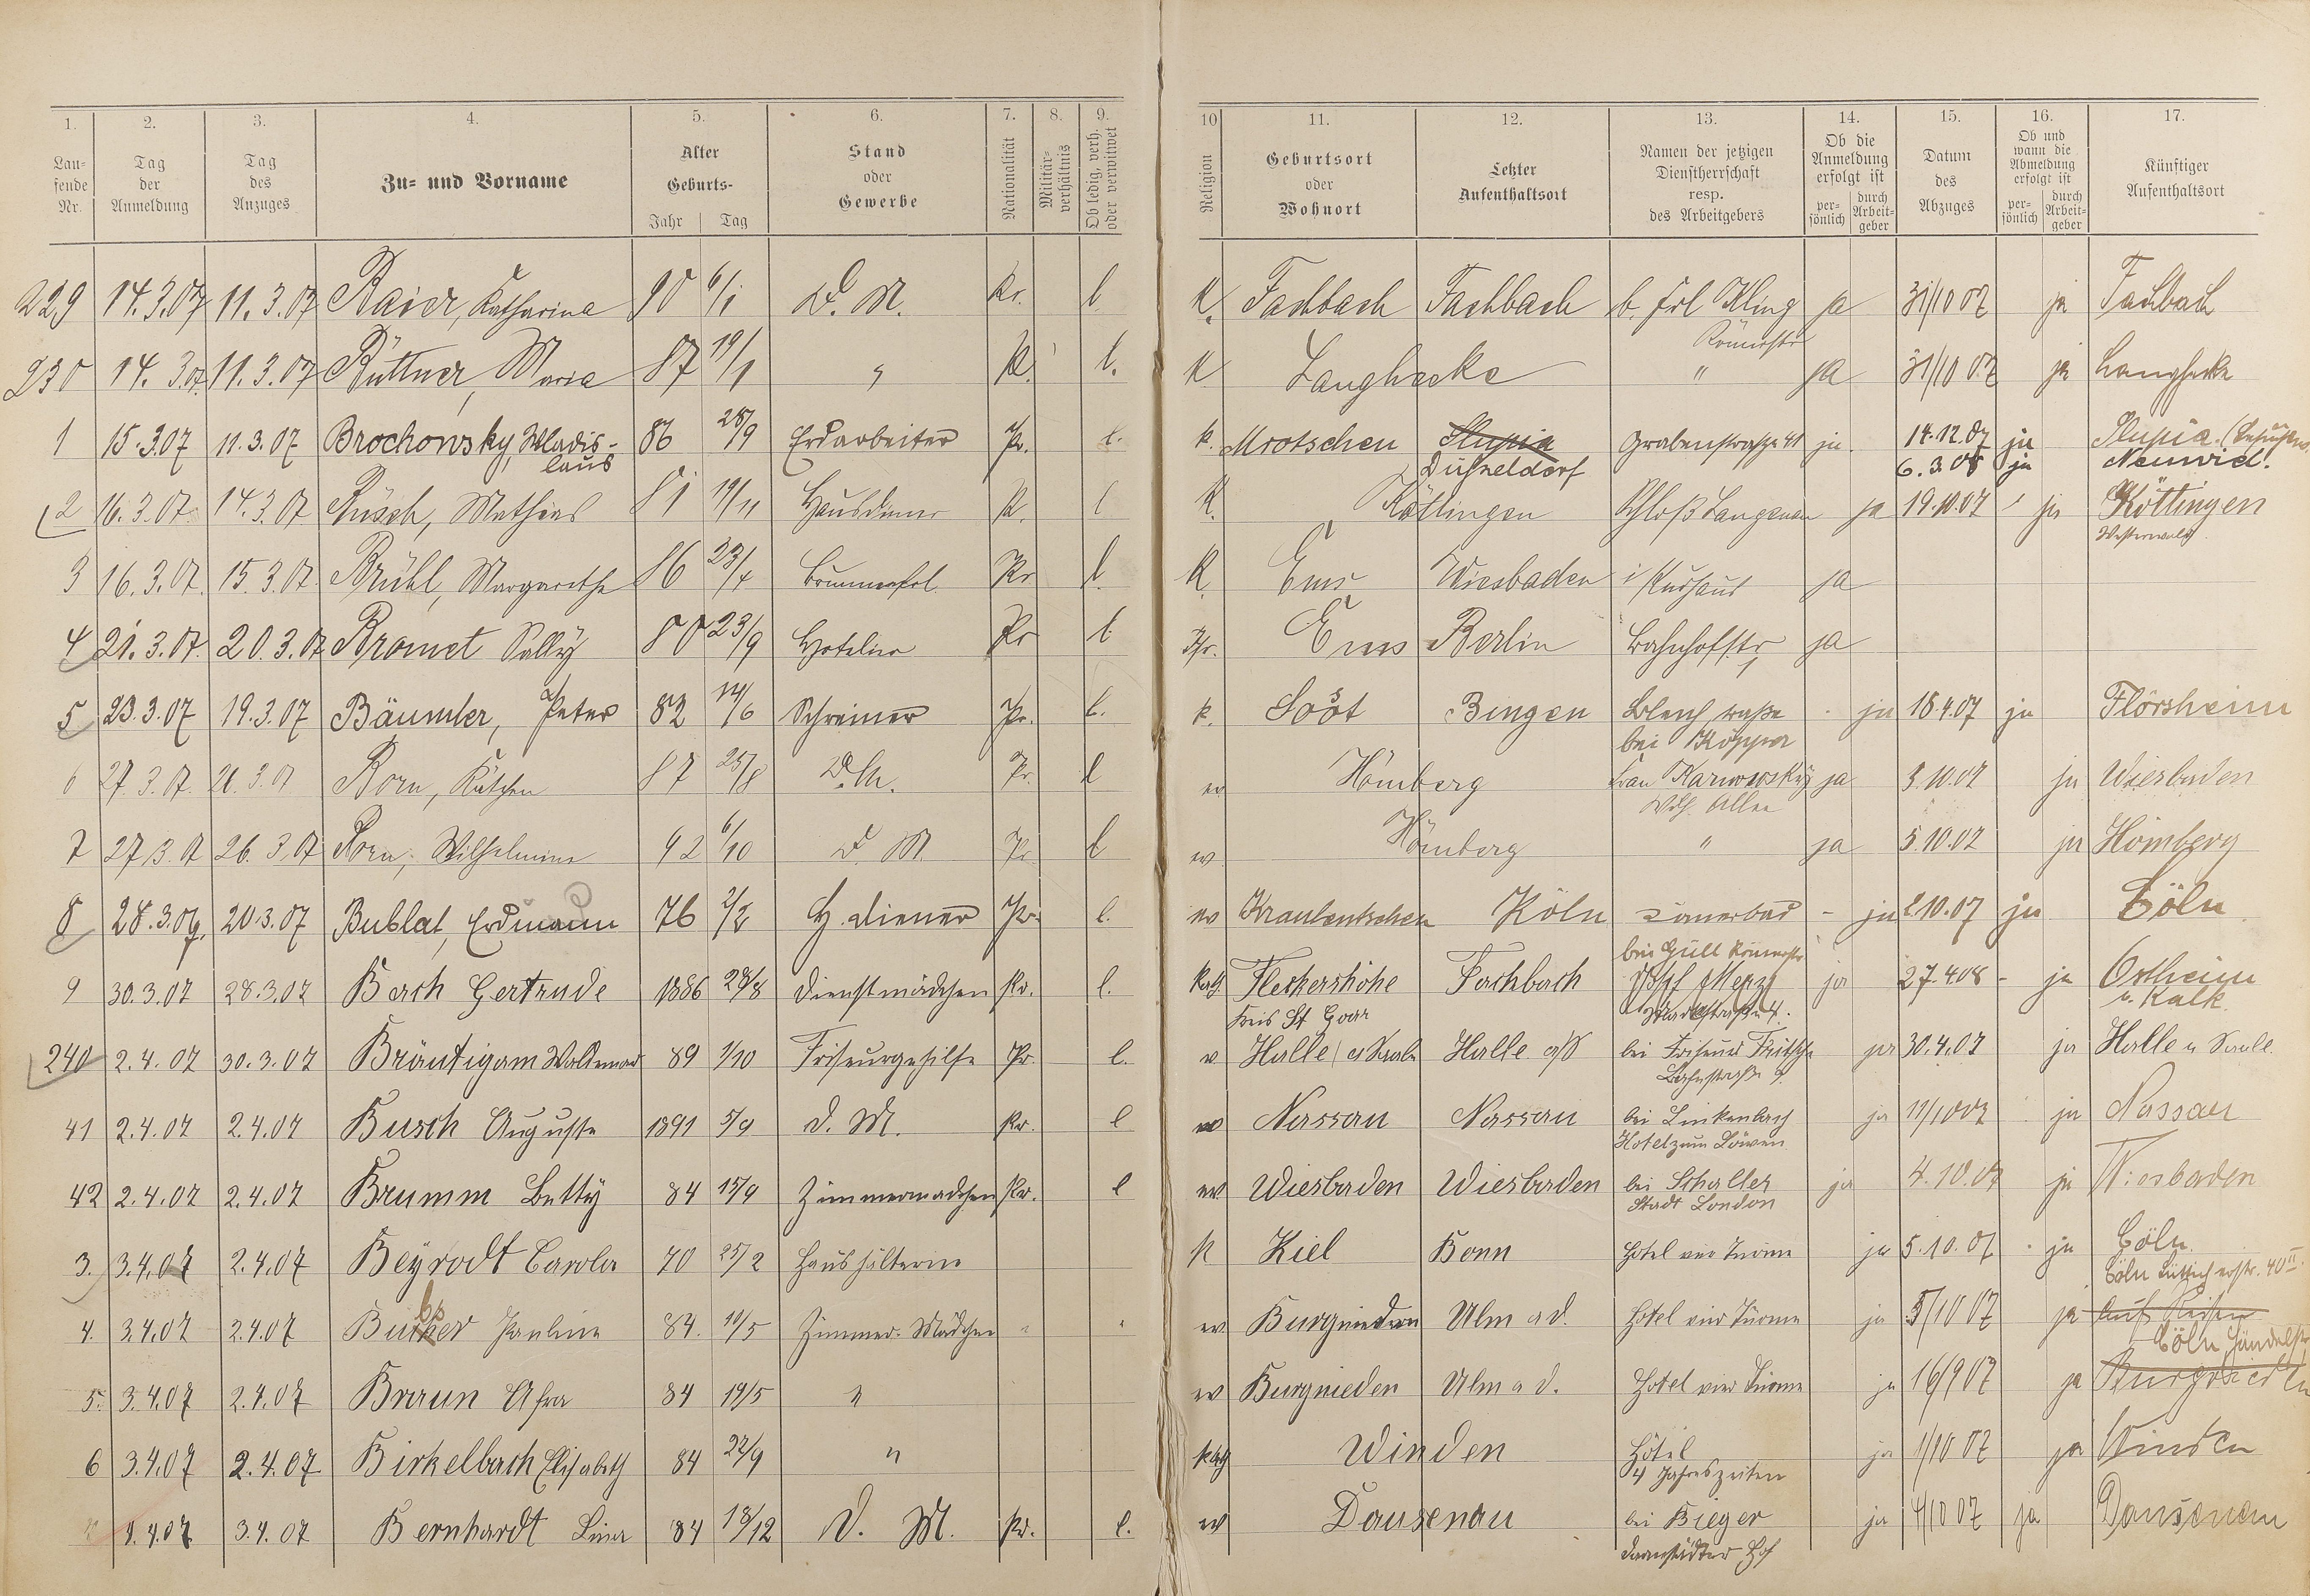 1. 2. 3. 4. 5. 6. 7. 8. 9. 10 11. 12. 13. 14. 15. 16. 17.
Laufende Nr. | Tag der Anmeldung | Tag des Anzuges | Zu- und Vorname | Alter Geburts- Jahr Tag | Stand oder Gewerbe | Nationalität | Militärverhältnis | Ob ledig, verh. oder verwitwet | Religion | Geburtsort oder Wohnort | Letzter Aufenthaltsort | Namen der jetzigen Dienstherrschaft resp. des Arbeitgebers | Ob die Anmeldung erfolgt ist persönlich durch Arbeitgeber | Datum des Abzuges | Ob und wann die Abmeldung erfolgt ist persönlich durch Arbeitgeber | Künftiger Aufenthaltsort
229 14.3.07 11.3.07 Baier, Katharina 90 6/1 D. M. Pr. l K. Fachbach Fachbach b. Frl Kling ja 31/10 07 ja Fachbach
Römerstr
230 14.3.07 11.3.07 Büttner, Maria 87 19/1 " Pr. l. K Langhecke " ja 31/10 07 ja Langhecke
1 15.3.07 11.3.07 Brochowsky, Wladis- 86 28/9 Erdarbeiter Pr. l. k. Mrotschen Slupia Grabenstraße 41 ja. 14.12.07 ja Slupia.
laus Düsseldorf 6.3.08 ja Neuwied.
2 16.3.07 14.3.07 Büsch, Mathias 81 19/11 Hausdiener Pr. l K. Köttingen Schloß Langenau ja 19.10.07 ja Köttingen
Westerwald
3 16.3.07. 15.3.07. Brühl, Margarethe 86 23/4 Brunnenfrl. Pr l. K. Ems Wiesbaden i/Kurhaus ja
4 21.3.07. 20.3.07 Bromet Sally 80 23/9 Hotelier Pr l Ems Berlin Bahnhofstr ja
5 23.3.07 19.3.07 Bäumler, Peter 82 14/6 Schreiner Pr. l. k. Soost Bingen Bleichstraße - ja 18.4.07 ja Flörsheim
bei Küpper
6 27.3.07. 26.3.07 Born, Kätchen 87 25/8 D. M. Pr. l ev Hömberg Frau Karnowsky ja 3.10.07 ja Wiesbaden
Wilh. Allee
7 27.3.07 26.3.07 Born, Wilhelmine 92 6/10 D. M. Pr l ev. Hömberg " ja 5.10.07 ja Hömberg
8 28.3.07. 20.3.07 Bublat, Erdmann 76 2/2 H. diener Pr. l. ev Kraulentschen Köln Römerbad - ja 2.10.07 ja Cöln
bei Güll Römerstr
9 30.3.07 28.3.07 Bach Gertrude 1886 28/8 Dienstmädchen Pr. l. Kath Fleckershöhe Fachbach Merz ja 27.4.08 - ja Ostheim
Kreis St Goar b. Kalk
240 2.4.07 30.3.07 Bräutigam Waldemar 89 1/10 Friseurgehilfe Pr. l. ev Halle a/Saale Halle a/S bei Friseur Fritsche ja 30.4.07 ja Halle a Saale.
Lahnstraße 9.
41 2.4.07 2.4.07 Busch Auguste 1891 5/9 D. M. Pr. l ev Nassau Nassau bei Linkenbach ja 11/10 07 ja Nassau
Hotel zum Löwen
42 2.4.07 2.4.07 Brumm Betty 84 15/9 Zimmermädchen Pr. l ev Wiesbaden Wiesbaden bei Schaller ja 4.10.07 ja Wiesbaden
Stadt London
3. 3.4.07 2.4.07 Beyrodt Carola 70 25/2 Haushälterin K Kiel Bonn Hotel vier Türme ja 5.10.07 ja Cöln.
Cöln Lütticherstr. 40 II.
4. 3.4.07 2.4.07 Pauline 84. 11/5 Zimmer-Mädchen " " ev Burgrieden Ulm a d. Hotel vier Türme ja 5/10 07 ja auf Reisen
Cöln Händelstr
5. 3.4.07 2.4.07 Braun Afra 84 19/5 " ev Burgrieden Ulm a d. Hotel vier Türme ja 16/9 07 ja Burgrieden
6 3.4.07 2.4.07 Birkelbach Elisabeth 84 22/9 " Kath Winden Hôtel ja 1/10 07 ja Winden
4 Jahreszeiten
4.4.07 3.4.07 Bernhardt Lina 84 18/12 D. M. Pr. l. ev Dausenau bei Bieger ja 4/10 07 ja Dausenau
Darmstädter Hof